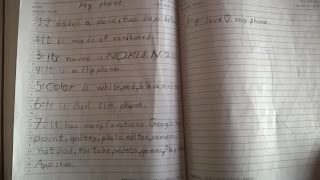 My phone
1: It makes a pank, two days before
2: It is made of cardboard.
3: Its name is NOKIAN
4: It is a flip phone.
5: color is white, red, black
6: It is dual sim phone.
7: It has many functions. Google
point, gallery, photo editor, camera
notpad, YouTube, videos, games,
Apostism.
My love♡ my phone.